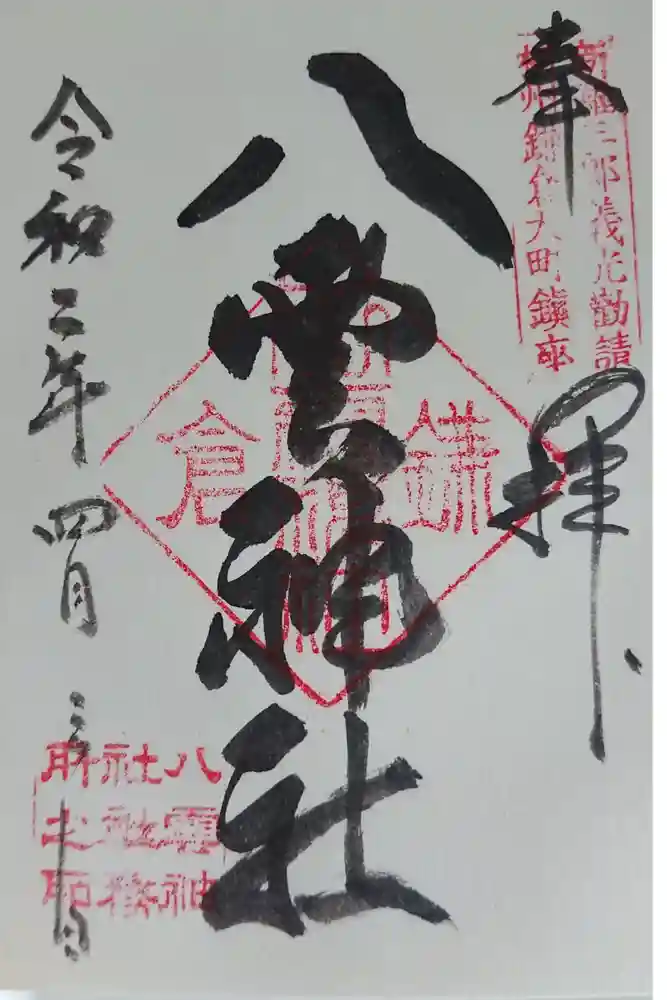 新羅三郎義光勧請
相州鎌倉大町鎭座
奉拝
八雲神社
鎌倉
令和二年四月三十日
八雲神
社社務
所之印